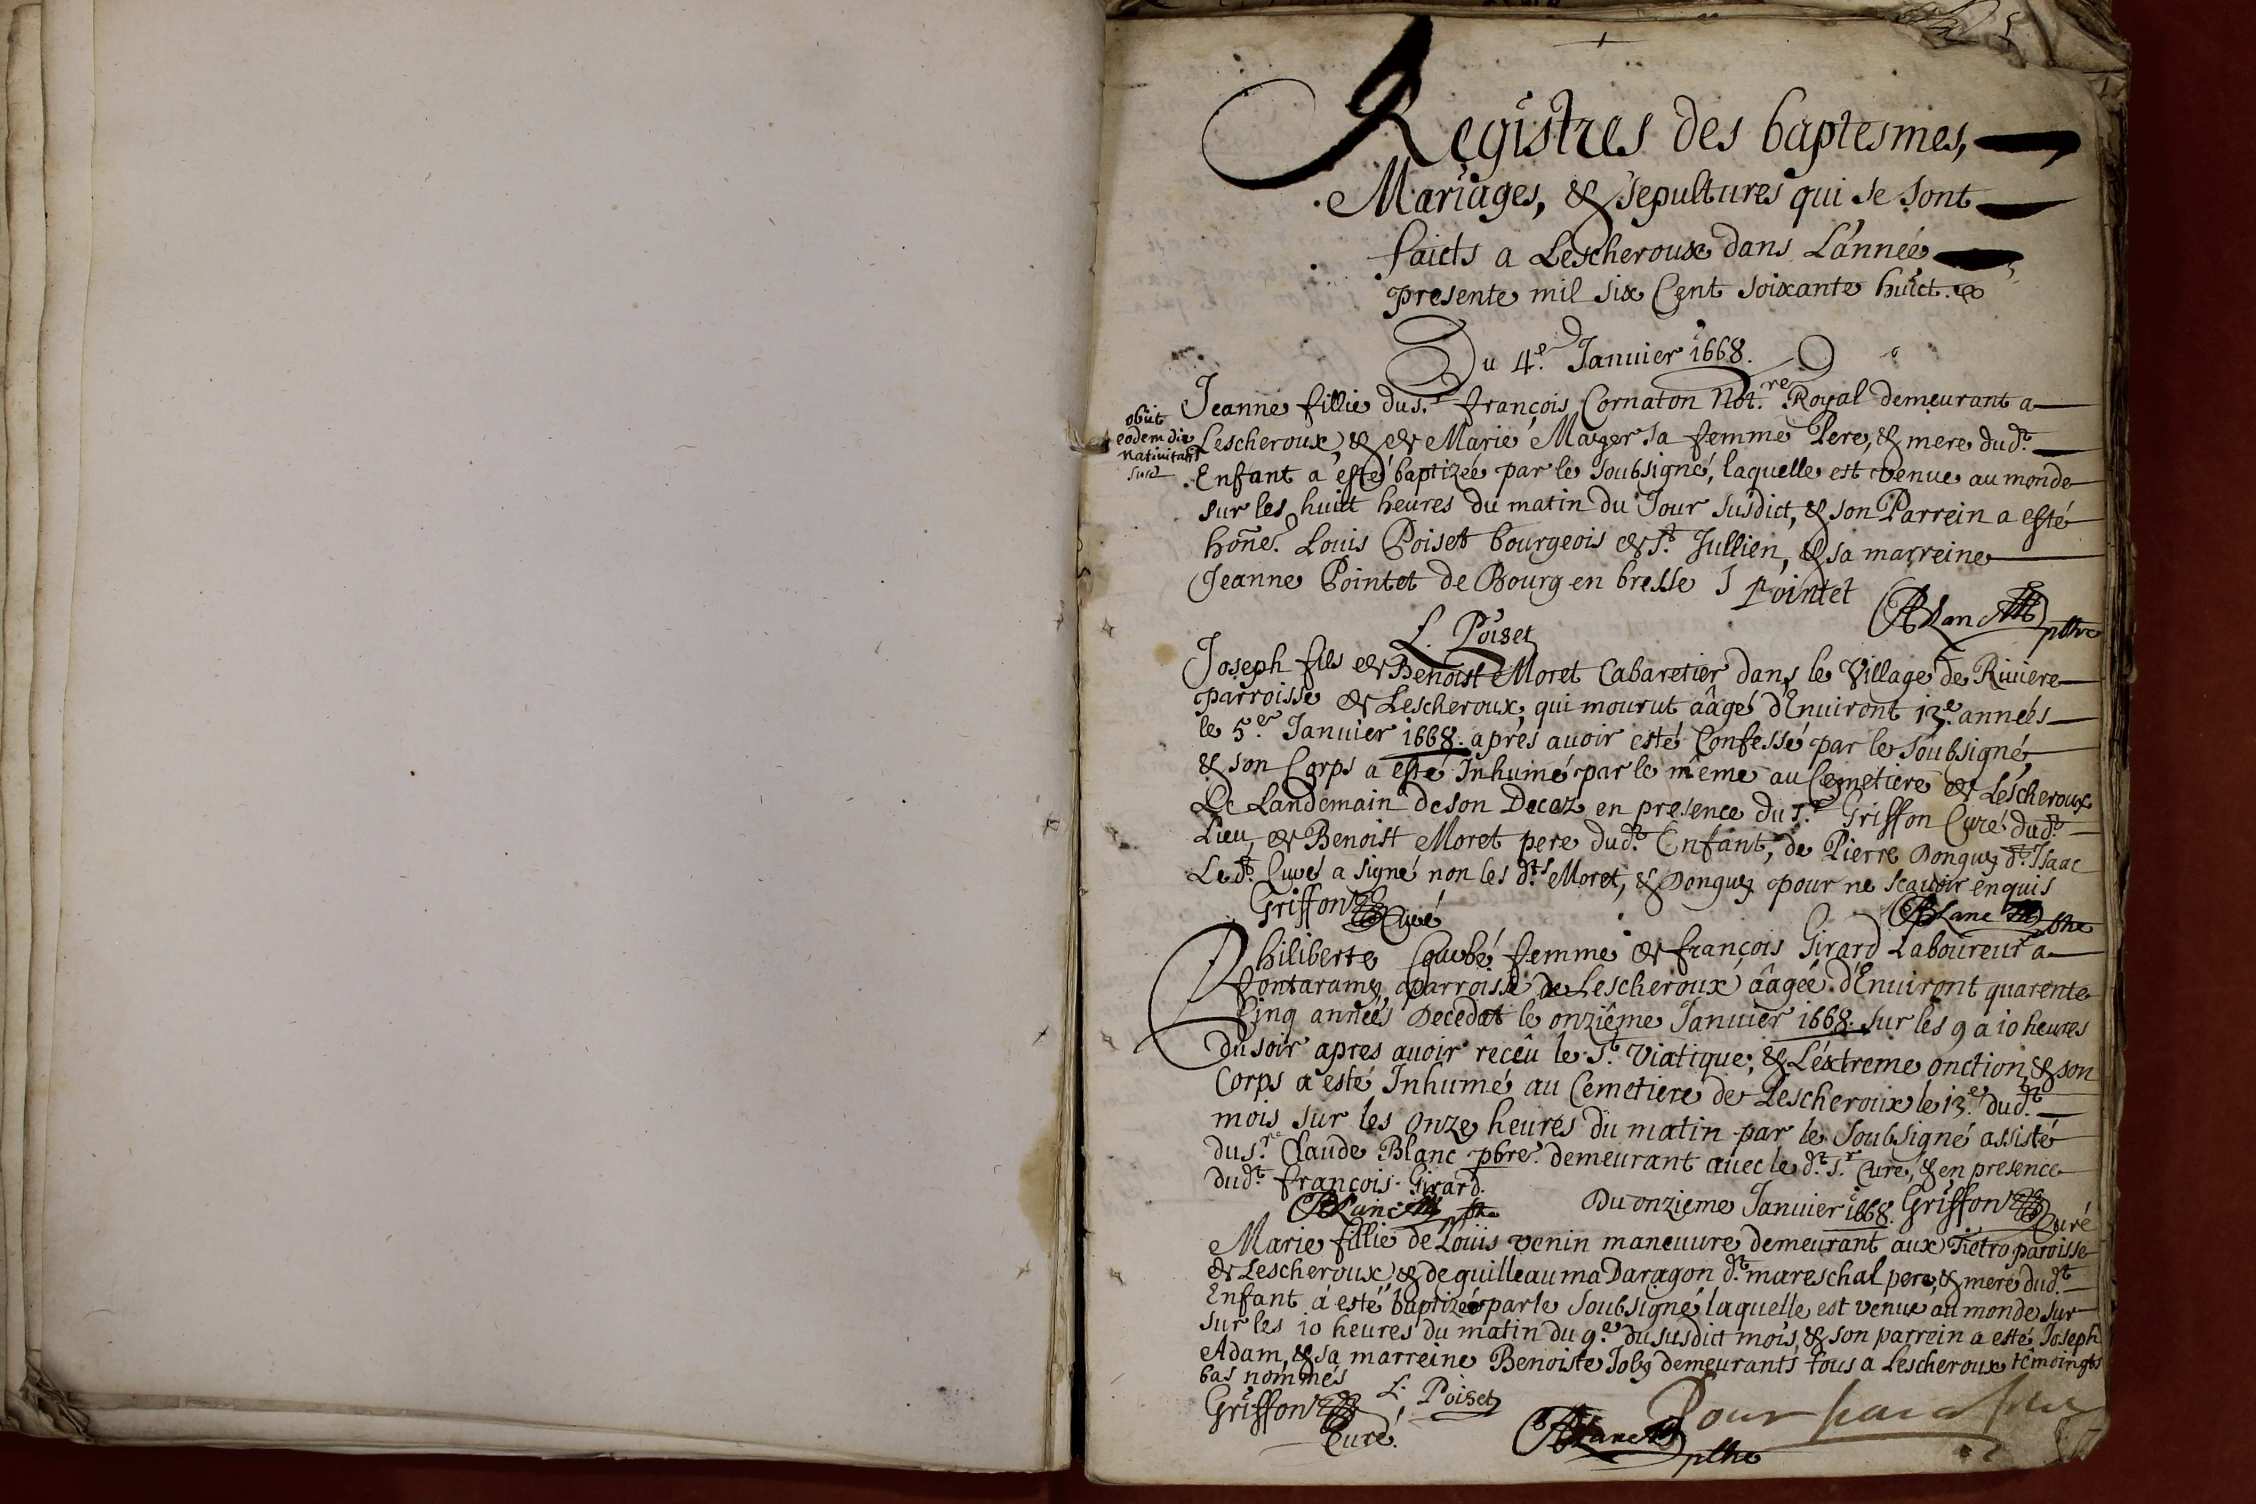 Registres des baptesmes,
Mariages, & sepultures qui se sont
faicts a Lescheroux dans L'année
presente mil six Cent soixante huict. &
Du 4.e Januier 1668.
Jeanne fillie du s.r françois Cornaton Not.re Royal demeurant a
Lescheroux, & de Marie Mager sa femme Pere, & mere dud.t
Enfant a esté baptizée par le soubsigné, laquelle est venue au monde
sur les huict heures du matin du Jour susdict, & son Parrein a esté
hon̄e. Louis Poiset bourgeois de s.t Jullien, & sa marreine
Jeanne Pointet de Bourg en bresse J Pointet
obiit
eodem die
natiuitatis
suæ
Blanc pbre
L. Poiset
Joseph fils de Benoist Moret Cabaretier dans le Village de Riuiere
parroisse de Lescheroux, qui mourut âagé d'Enuiront 13.e années
le 5.e Januier 1668. apres auoir esté Confessé par le soubsigné,
& son Corps a esté Inhumé par le même au Cemetiere de Lescheroux
Le Landemain de son Decaz en presence du s.r Griffon Curé dud.t
Lieu, de Benoist Moret pere dud.t Enfant, de Pierre Donguy d.t Isaac
Le d.t Curé a signé non les d.ts Moret, & Donguy pour ne scauoir enquis
Griffon Curé
Blanc pbre
Philiberte femme de françois Girard Laboureur a
parroisse de Lescheroux âagée d'Enuiront quarente
Cinq années Decedat le onziême Januier 1668. sur les 9 a 10 heures
du soir apres auoir recêu le s.t Viatique, & L'extreme onction, & son
Corps a esté Inhumé au Cemetiere de Lescheroux le 13.e dud.t
mois sur les onze heures du matin par le soubsigné assisté
du s.r Claude Blanc pbre. demeurant auec le d.t s.r Curé, & en presence
dud.t françois Girard.
Blanc pbre
Du onzieme Januier 1668. Griffon Curé
Marie fillie de Louis venin maneuure demeurant aux Tietro paroisse
de Lescheroux, & de guilleauma Daragon d.t mareschal pere, & mere dud.t
Enfant a esté baptizée par le soubsigné laquelle est venue au monde sur
sur les 10 heures du matin du 9.e du susdict mois, & son parrein a esté Joseph
Adam, & sa marreine Benoiste Joly demeurants tous a Lescheroux têmoingts
bas nommés
Griffon Curé.
L. Poiset
Blanc pbre
Pour